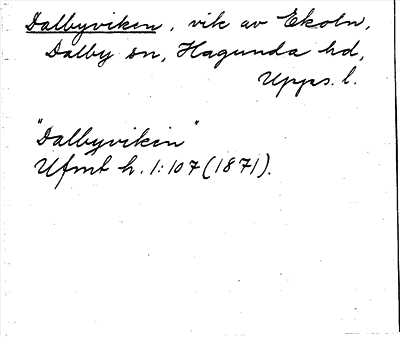 Dalbyviken, vik av Ekoln,
Dalby sn, Hagunda hd,
Upps. l.
"Dalbyviken"
Ufmt h. 1:107 (1871).